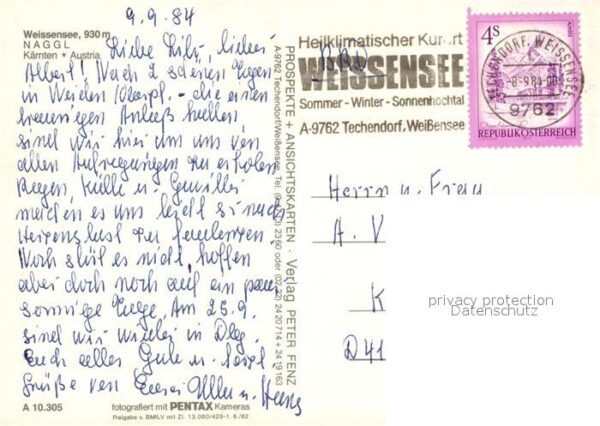 9.9.84
Weissensee, 930 m
NAGGL
Kärnten * Austria
Liebe Lilo, lieber
Albert! Nach 2 schönen Tagen
in Weiden /Oberpf. - die einen
traurigen Anlaß hatten
sind wir hier um uns von
allen Aufregungen zu erholen
Regen, Kälte u. Gewitter
machen es uns leicht so nach
Herzenslust zu faulenzen.
Noch stört es nicht, hoffen
aber doch noch auf ein paar
sonnige Tage. Am 25.9.
sind wir wieder in Dbg.
Euch alles Gute u. herzl.
Grüße von Eurer u. Heinz
A 10.305
fotografiert mit PENTAX Kameras
Freigabe v. BMfLV mit Zl. 13.080/429-1. 6/82
PROSPEKTE + ANSICHTSKARTEN · Verlag PETER FENZ
A-9762 Techendorf/Weißensee, Tel. 2360 oder (02 22) 24 20 714 + 24 19 163
Heilklimatischer Kurort
WEISSENSEE
Sommer - Winter - Sonnenhochtal
A-9762 Techendorf, Weißensee
4S
TECHENDORF, WEISSENSEE
-8.-9.84
9762
REPUBLIK ÖSTERREICH
Herrn u. Frau
A. V
K
D 41
privacy protection
Datenschutz